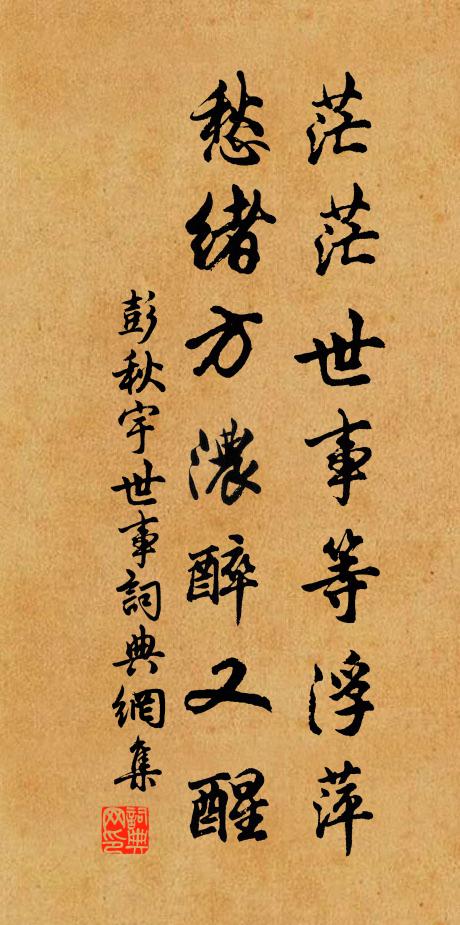 茫茫世事等浮萍
愁緒方濃醉又醒
彭秋宇世事詞典網集
詞典網印